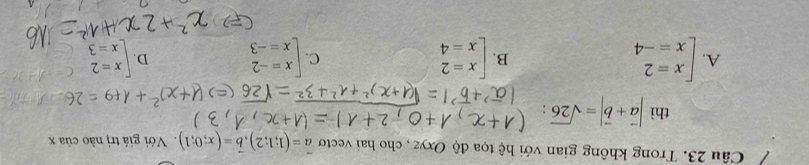 Câu 23. Trong không gian với hệ tọa độ Oxyz, cho hai vectơ a⃗ = (1;1;2), b⃗ = (x;0;1). Với giá trị nào của x
thì |a⃗ + b⃗| = √26 :
(1+x, 1+0, 2+1) = (1+x, 1, 3)
|a⃗+b⃗| = √(1+x)²+1²+3² = √26 (=) (1+x)²+1+9 = 26
A. [x = 2 x = -4
B. [x = 2 x = 4
C. [x = -2 x = -3
D. [x = 2 x = 3
(=) x² + 2x + 1² = 16